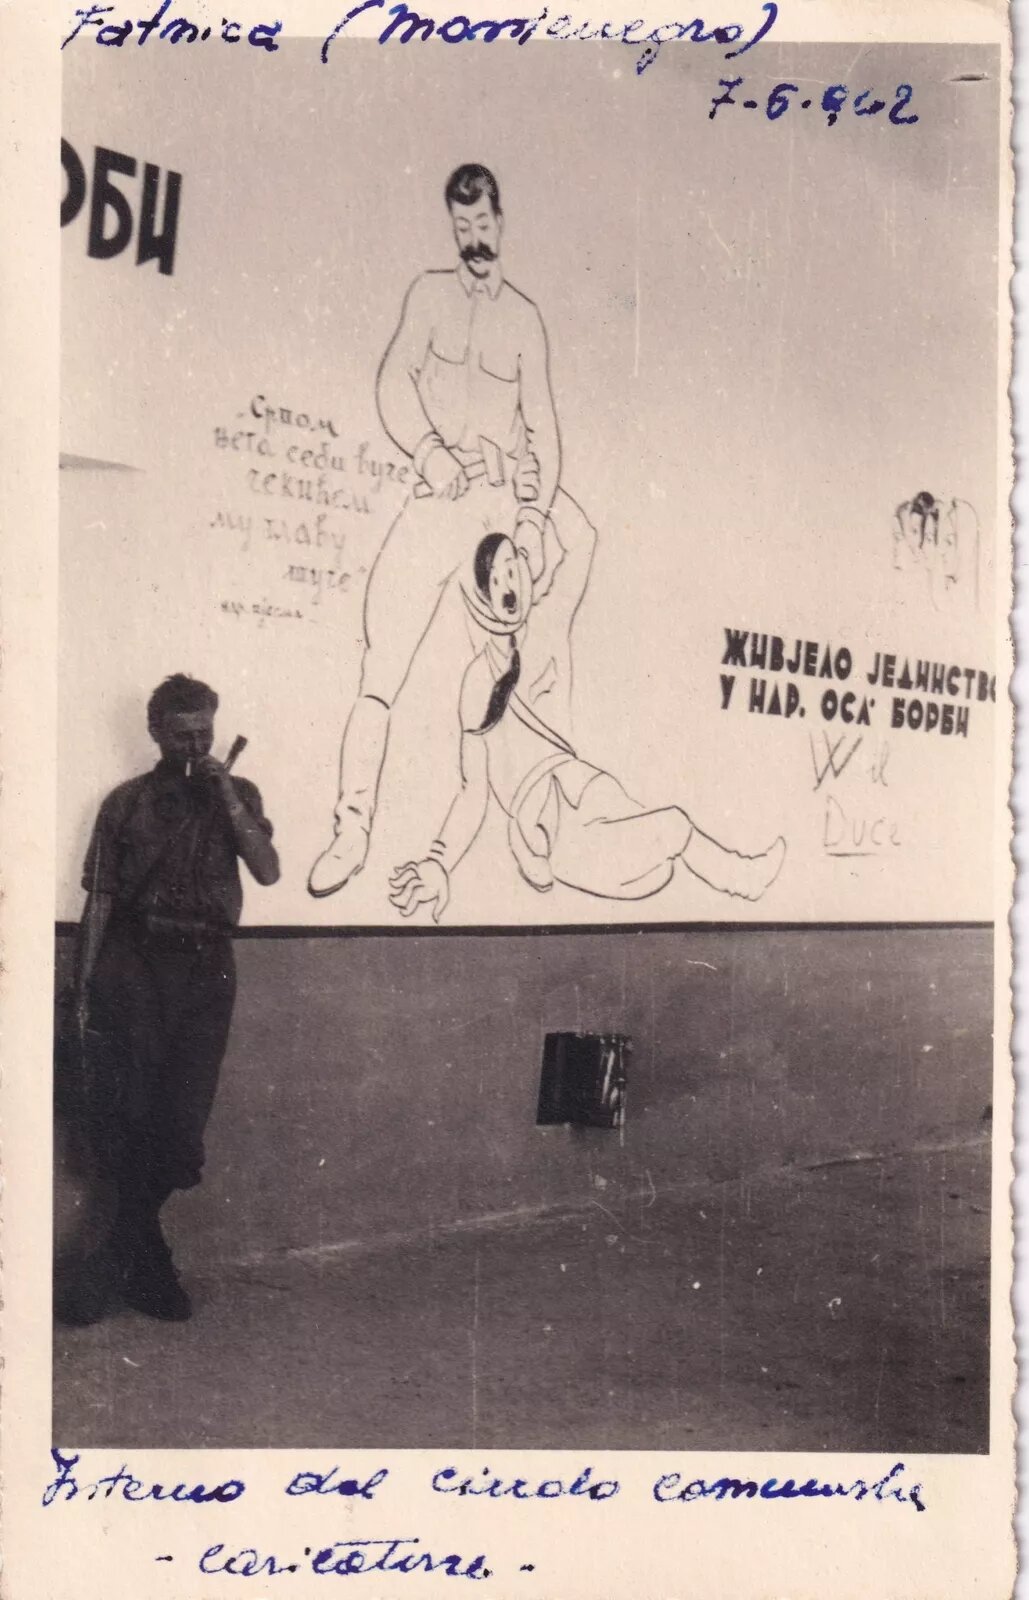 Fatnica (Montenegro)
7-6-942
РБИ
„Српом
њега себи вуче
чекићем
му главу
туче“
нар. пјесма
ЖИВЈЕЛО ЈЕДИНСТВО
У НАР. ОСЛ БОРБИ
W il
Duce
Interno del circolo comunista
- caricature. -